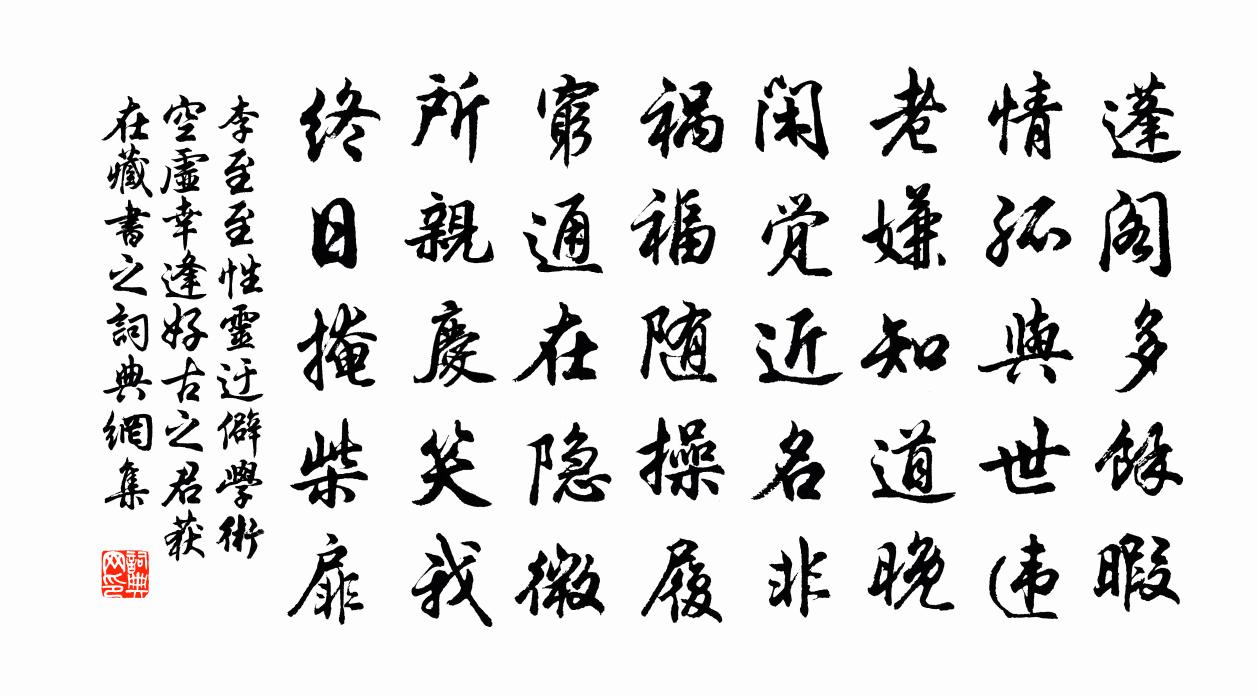 蓬阁多餘暇
情孤與世违
老嫌知道晚
闲觉近名非
祸福随操履
窮通在隐微
所親慶笑我
终日掩柴扉
李至至性靈迂僻學術
空虛幸逢好古之君获
在藏書之詞典網集
詞典
网印